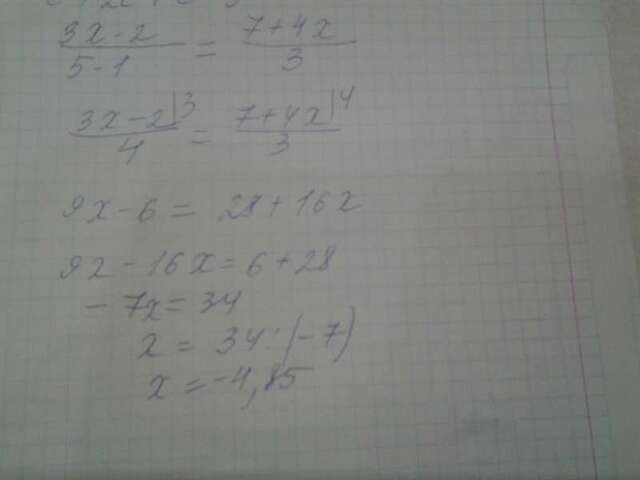 3x-2/5-1 = 7+4x/3
3x-2|3/4 = 7+4x|4/3
9x-6 = 28+16x
9x-16x=6+28
-7x=34
x = 34:(-7)
x = -4,85